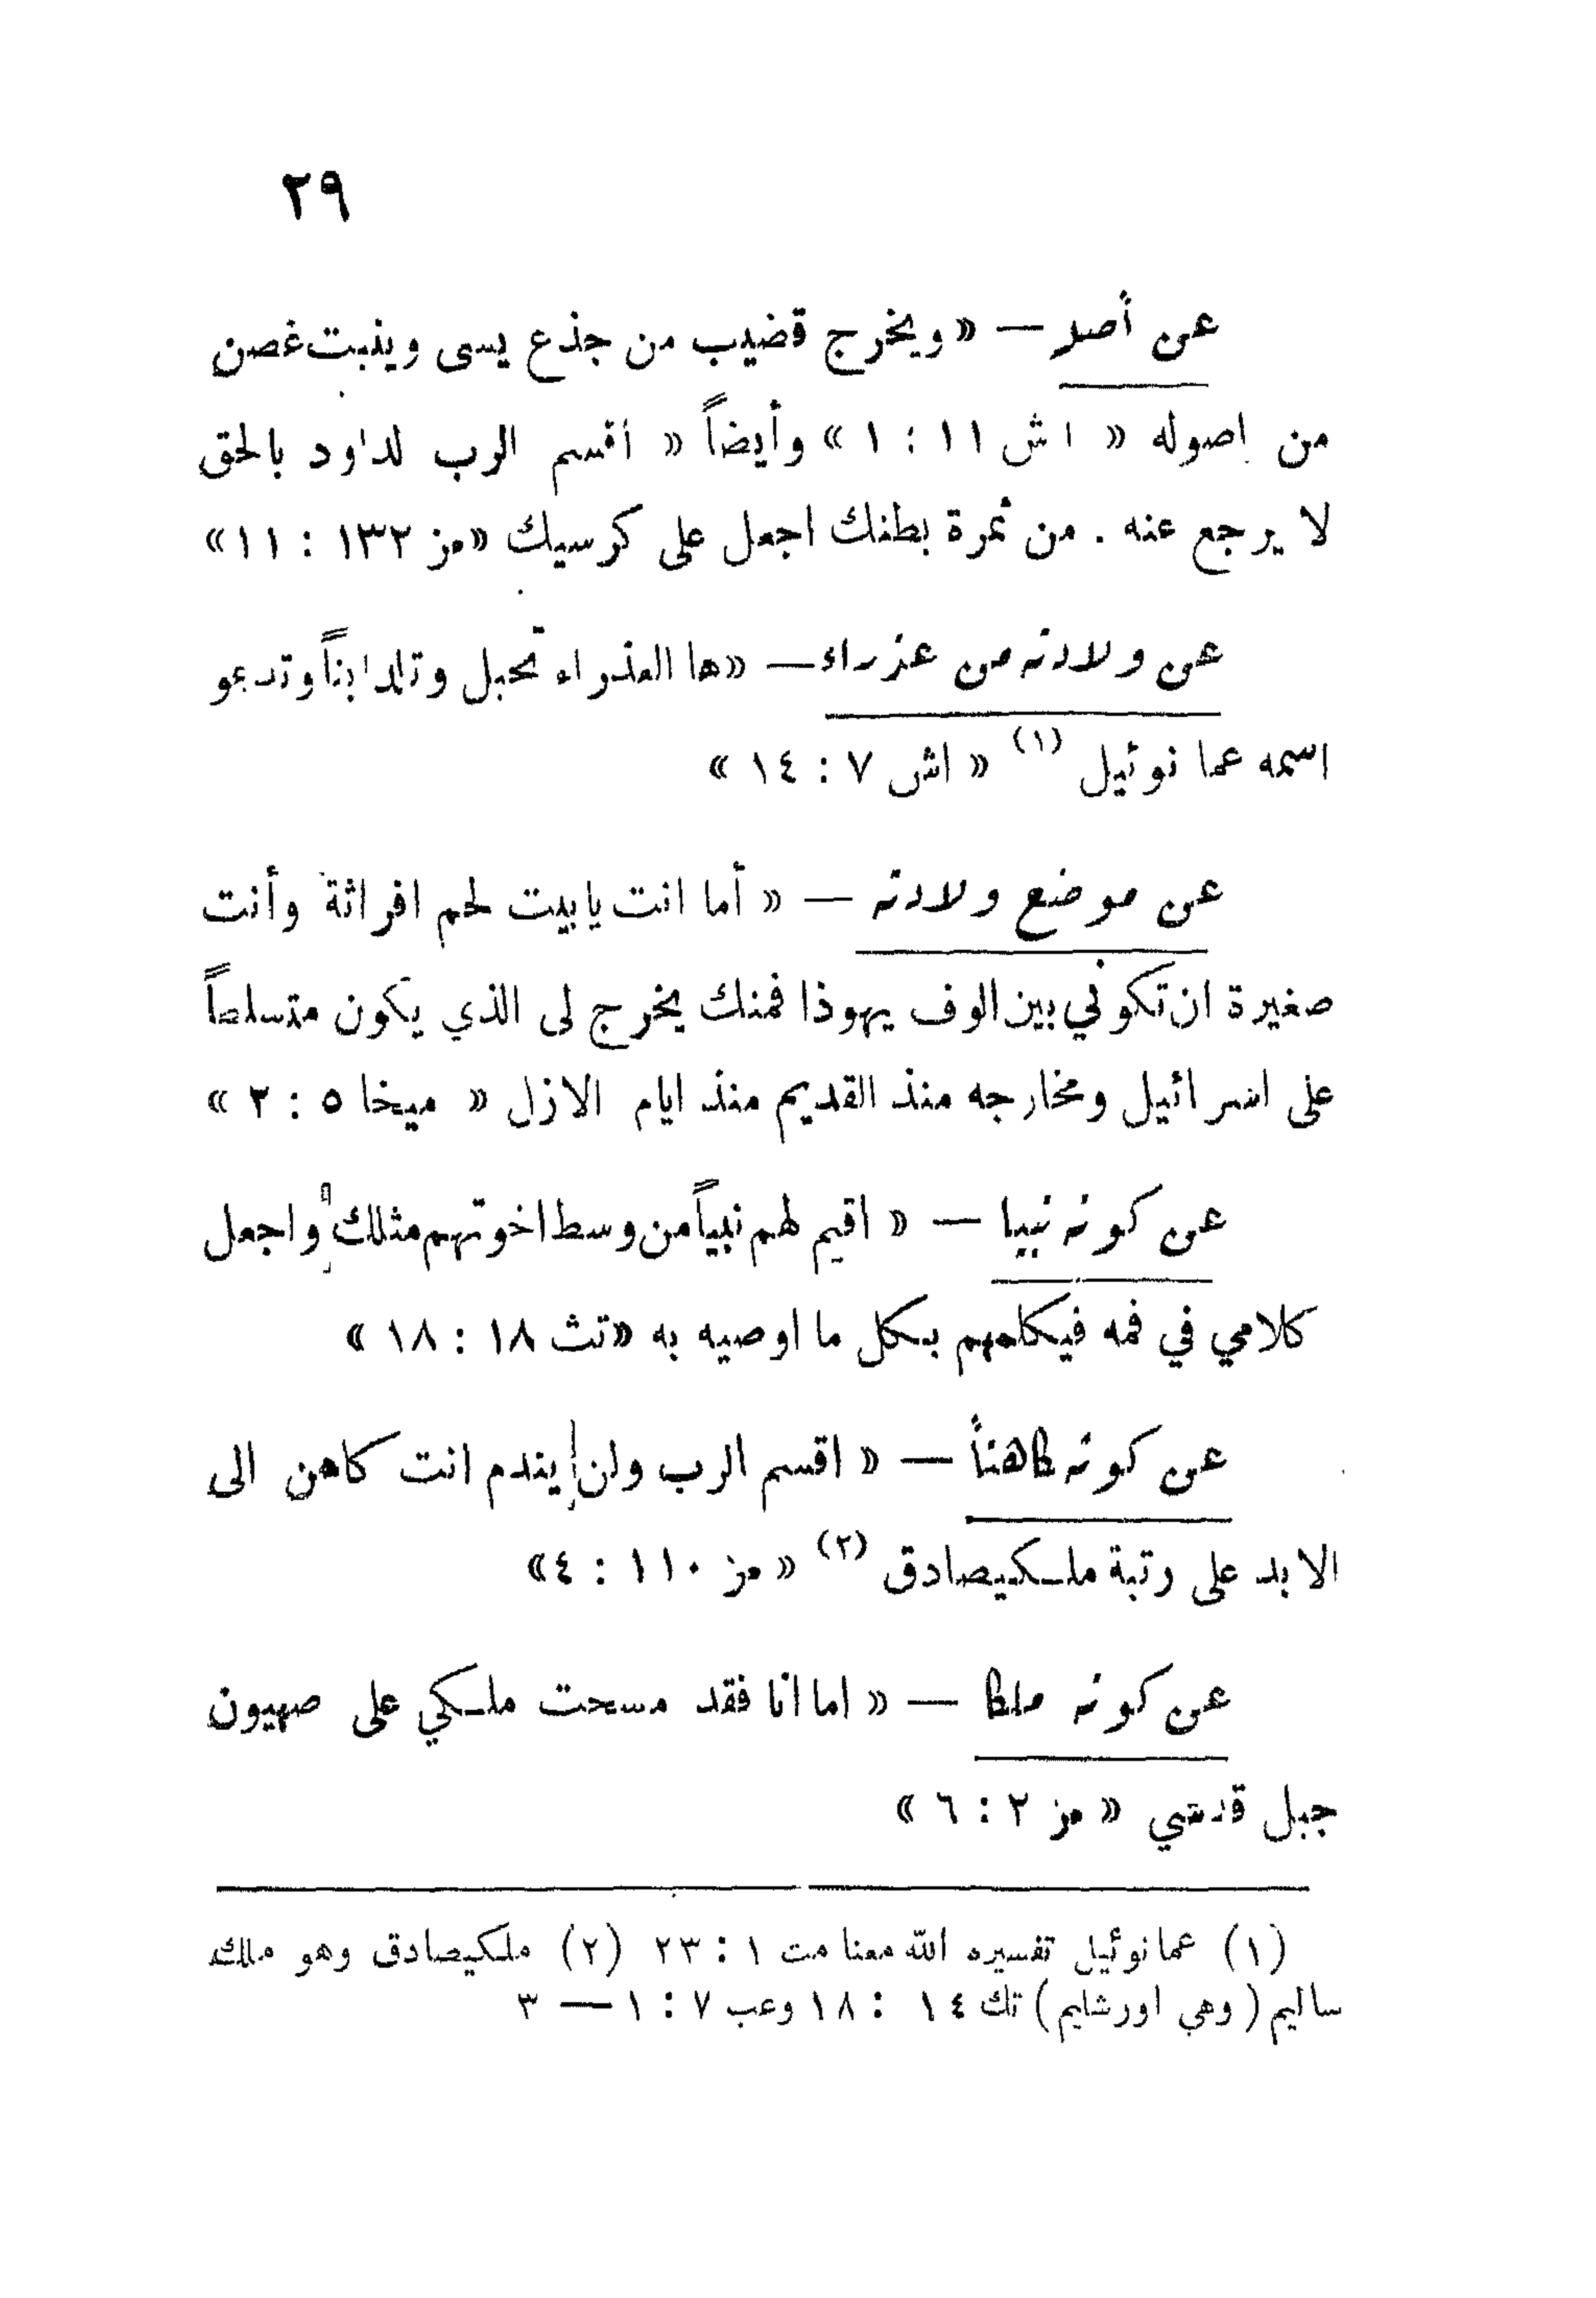 ٢٩
عن أصله — « ويخرج قضيب من جذع يسى وينبت غصن
من اصوله « اش ١١ : ١ » وأيضاً « أقسم الرب لداود بالحق
لا يرجع عنه . من ثمرة بطنك اجعل على كرسيك « مز ١٣٢ : ١١ »
عن ولادته من عذراء — « ها العذراء تحبل وتلد ابناً وتدعو
اسمه عمانوئيل (١) « اش ٧ : ١٤ »
عن موضع ولادته — « أما انت يا بيت لحم افراثة وأنت
صغيرة ان تكوني بين الوف يهوذا فمنك يخرج لى الذي يكون متسلطاً
على اسرائيل ومخارجه منذ القديم منذ ايام الازل « ميخا ٥ : ٢ »
عن كونه نبيا — « اقيم لهم نبياً من وسط اخوتهم مثلك واجعل
كلامي في فمه فيكلمهم بكل ما اوصيه به « تث ١٨ : ١٨ »
عن كونه كاهناً — « اقسم الرب ولن يندم انت كاهن الى
الابد على رتبة ملكيصادق (٢) « مز ١١٠ : ٤ »
عن كونه ملكا — « اما انا فقد مسحت ملكي على صهيون
جبل قدسي « مز ٢ : ٦ »
(١) عمانوئيل تفسيره الله معنا مت ١ : ٢٣ (٢) ملكيصادق وهو ملك
ساليم ( وهي اورشليم ) تك ١٤ : ١٨ وعب ٧ : ١ — ٣